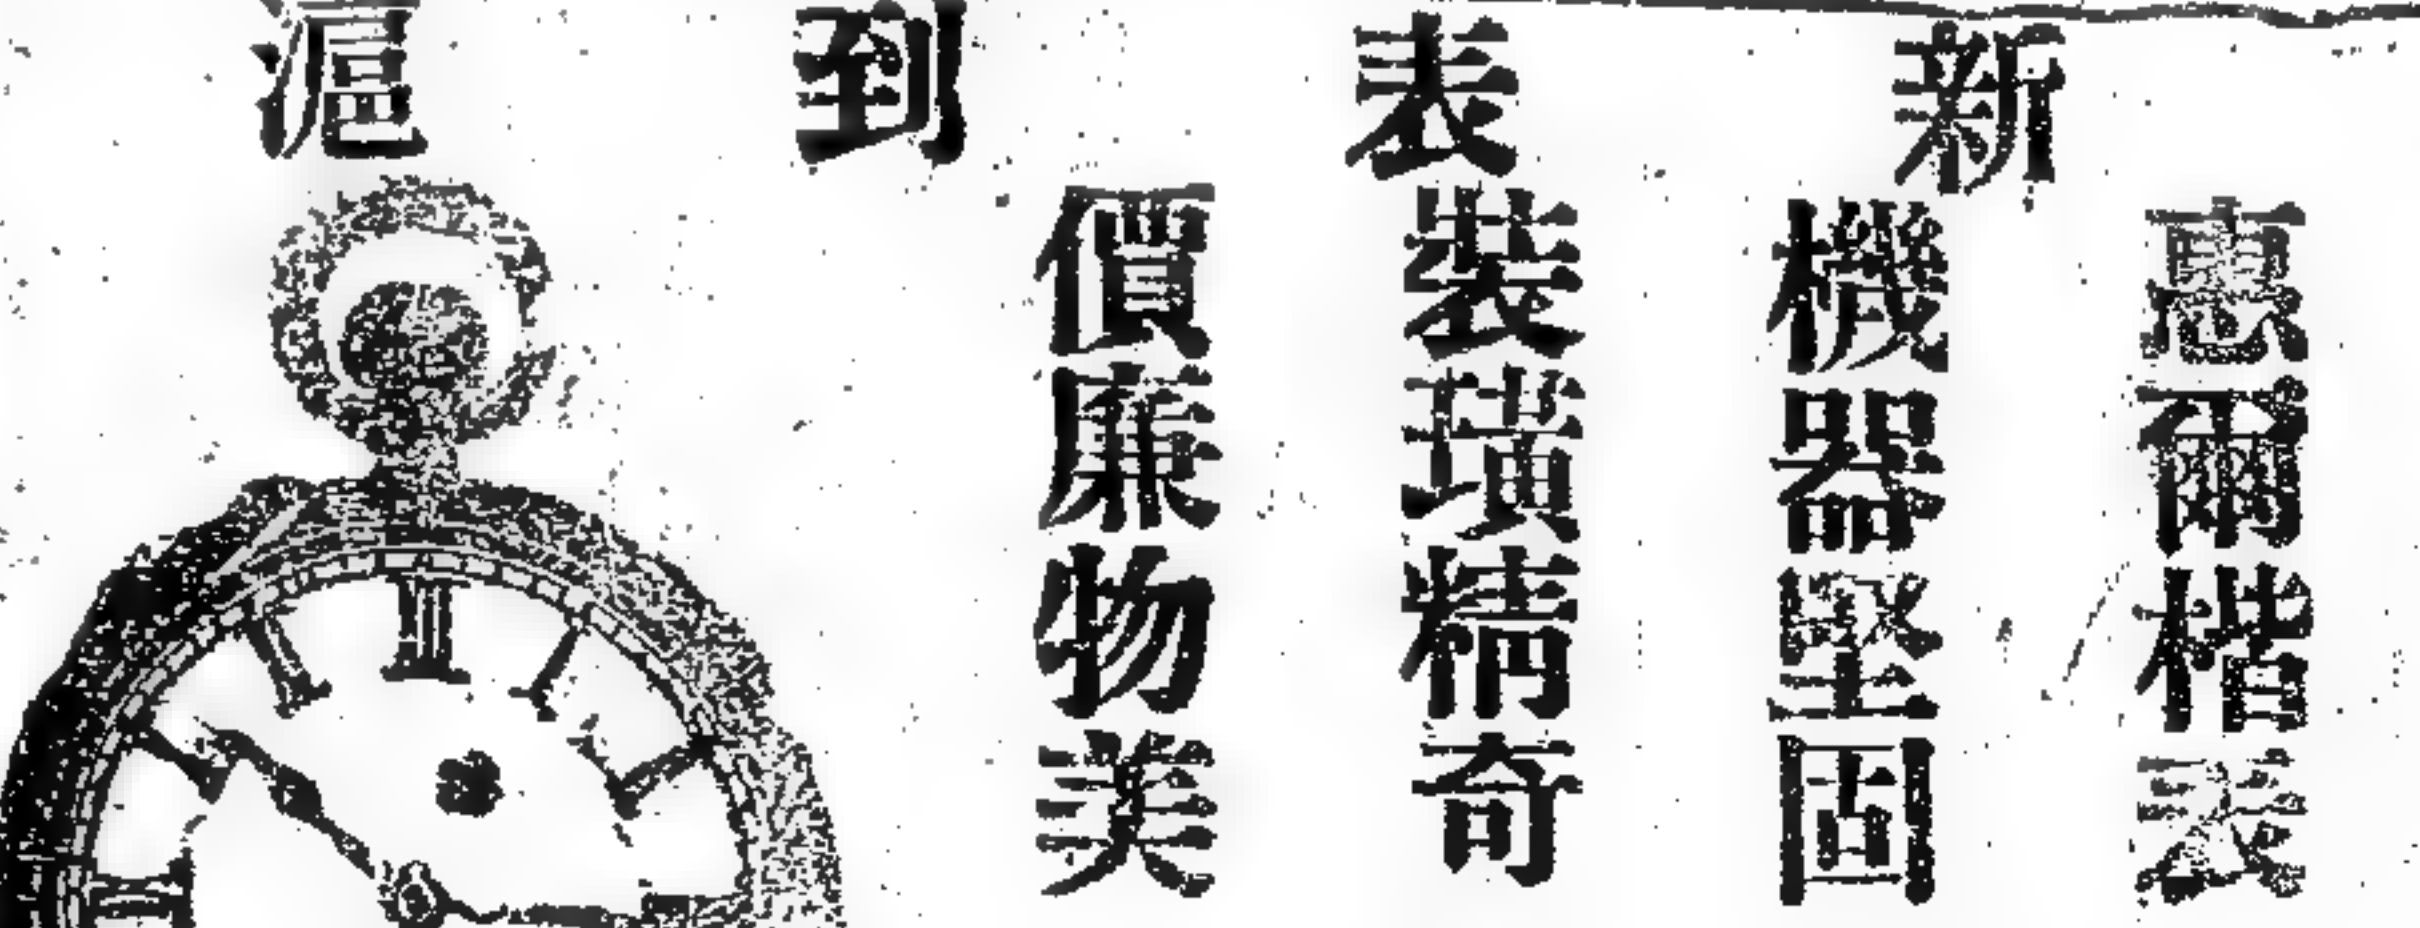 新表到滬
惠爾楷表
機器堅固
裝璜精奇
價廉物美